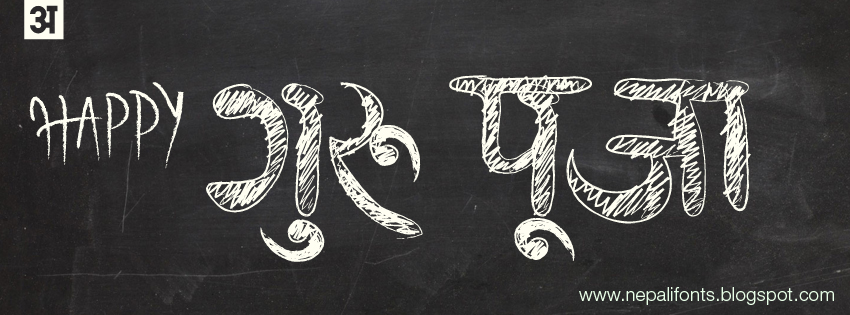 अ
HAPPY गुरू पूजा
www.nepalifonts.blogspot.com